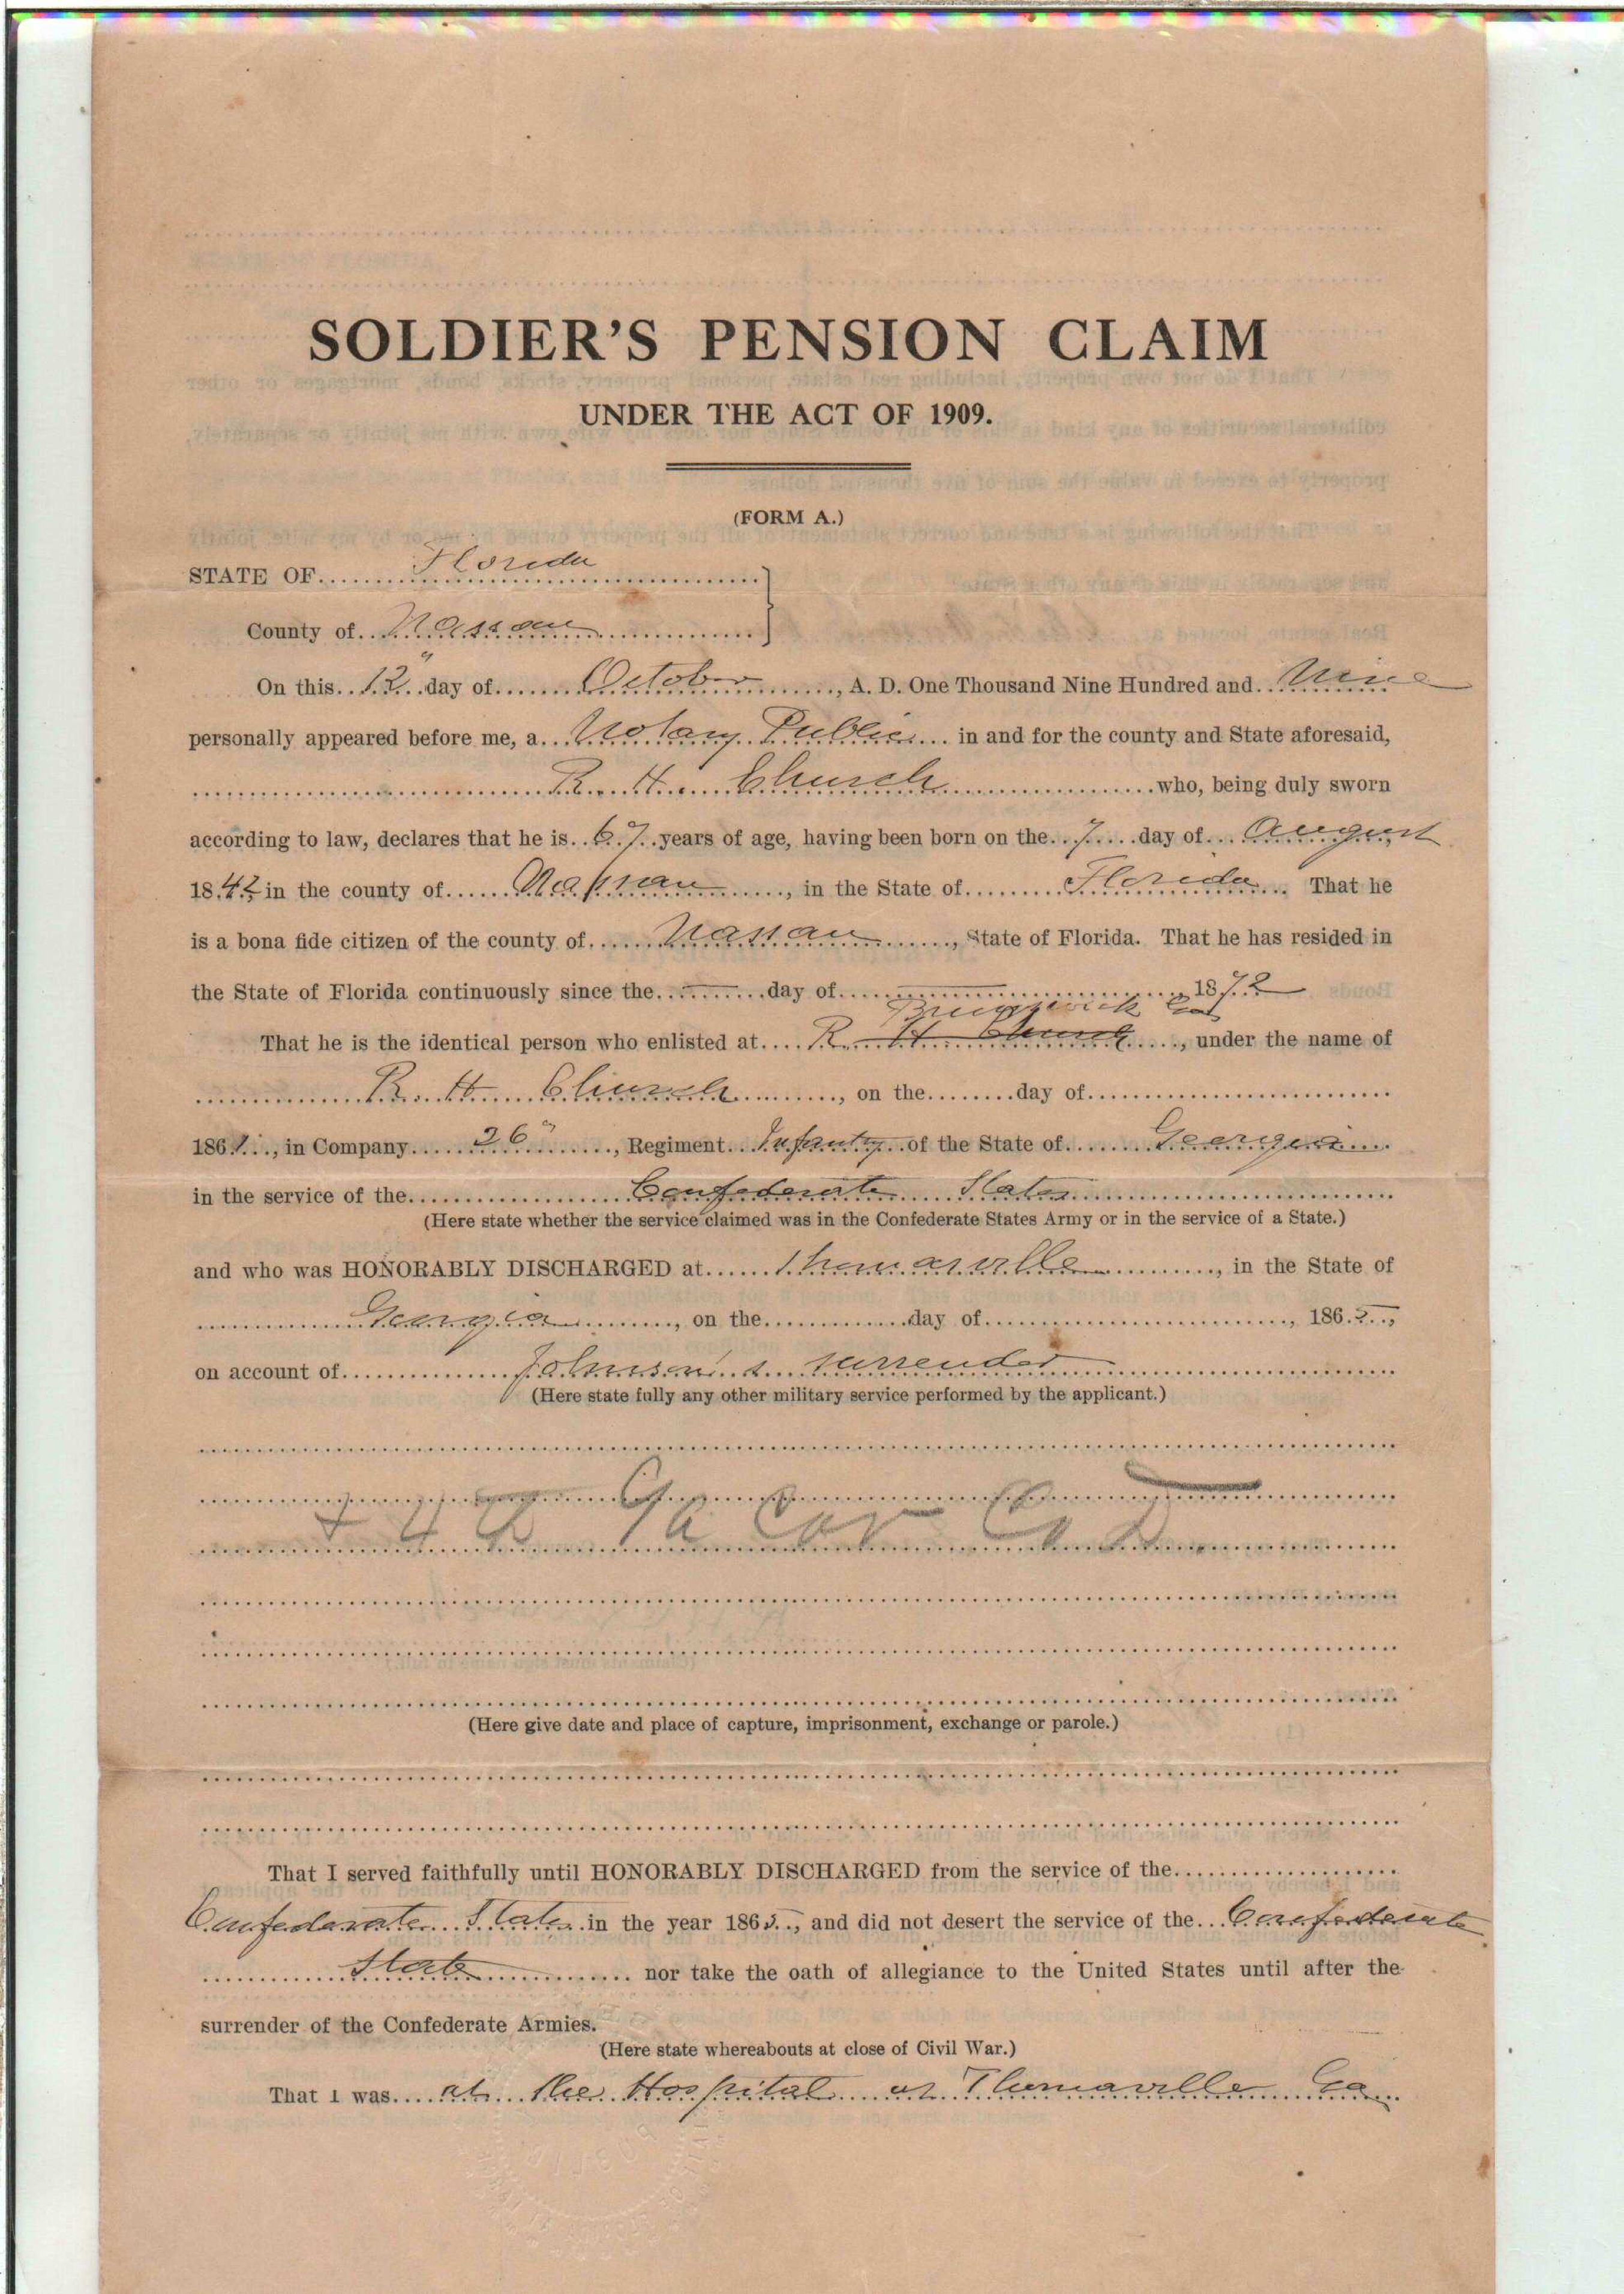 SOLDIER'S PENSION CLAIM
UNDER THE ACT OF 1909.
(FORM A.)
STATE OF Florida
County of Nassau
On this 12" day of October, A. D. One Thousand Nine Hundred and Nine
personally appeared before me, a Notary Public in and for the county and State aforesaid,
R. H. Church who, being duly sworn
according to law, declares that he is 67 years of age, having been born on the 7 day of August
1842 in the county of Nassau, in the State of Florida That he
is a bona fide citizen of the county of Nassau, State of Florida. That he has resided in
the State of Florida continuously since the day of 1872
Brunswick Ga
That he is the identical person who enlisted at R. H. Church, under the name of
R. H. Church, on the day of
1861, in Company 26", Regiment Infantry of the State of Georgia
in the service of the Confederate States
(Here state whether the service claimed was in the Confederate States Army or in the service of a State.)
and who was HONORABLY DISCHARGED at Thomasville, in the State of
Georgia, on the day of, 1865,
on account of Johnson's surrender
(Here state fully any other military service performed by the applicant.)
Ga Cav Co D
(Here give date and place of capture, imprisonment, exchange or parole.)
That I served faithfully until HONORABLY DISCHARGED from the service of the
Confederate States in the year 1865, and did not desert the service of the Confederate
State nor take the oath of allegiance to the United States until after the
surrender of the Confederate Armies.
(Here state whereabouts at close of Civil War.)
That I was at the Hospital at Thomaville Ga